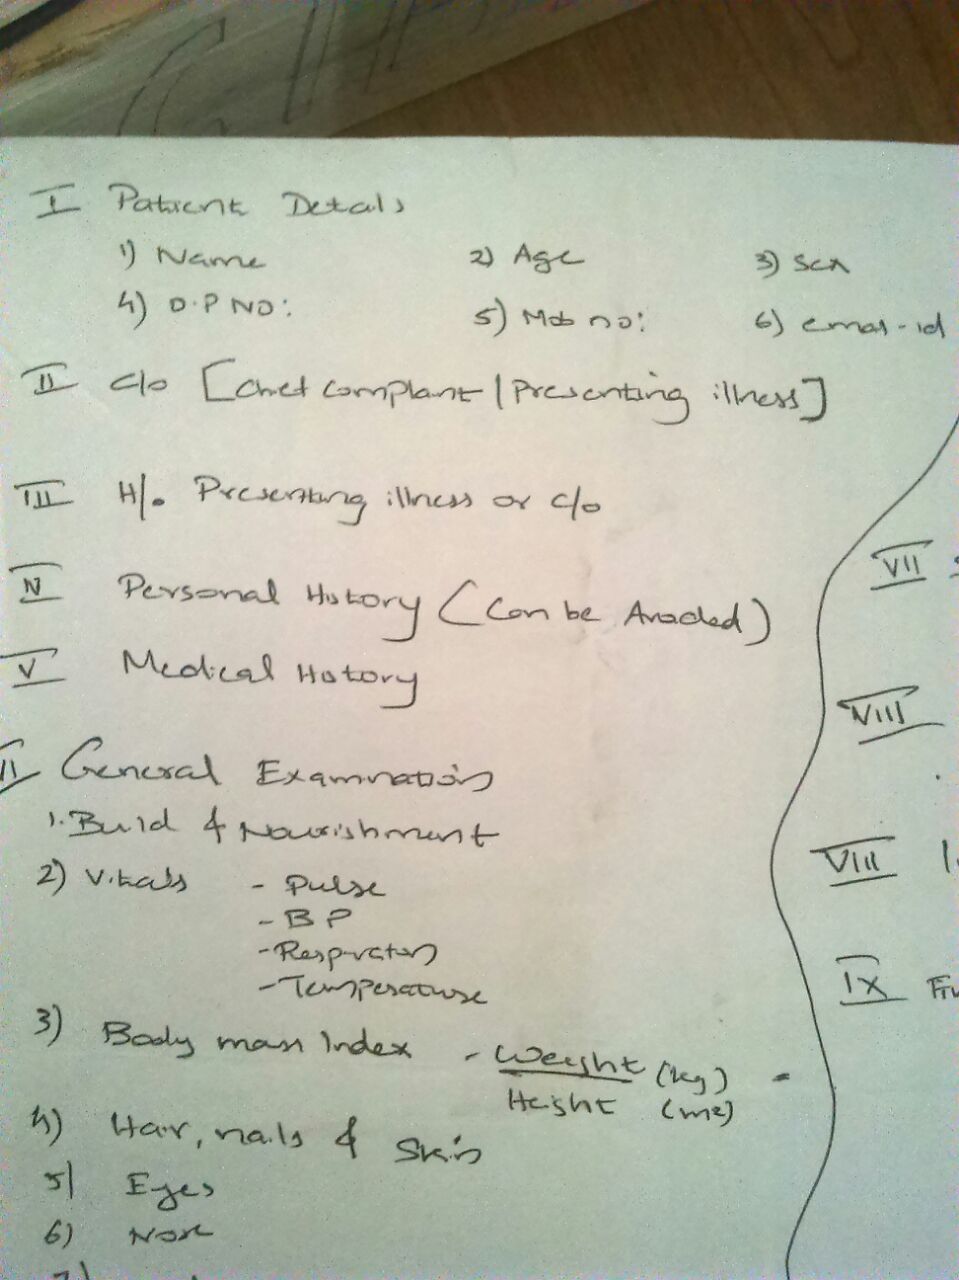 I Patient Details
1) Name 2) Age 3) Sex
4) O.P NO: 5) Mob no: 6) email-id
II c/o [Chief complaint / Presenting illness]
III H/o Presenting illness or c/o
IV Personal History (Can be Avoided)
V Medical History
General Examination
1. Build & Nourishment
2) Vitals - Pulse
- BP
- Respiration
- Temperature
3) Body mass Index - Weight (kg)
Height
4) Hair, nails & Skin
5) Eyes
6) Nose
VII
VIII
VIII
IX